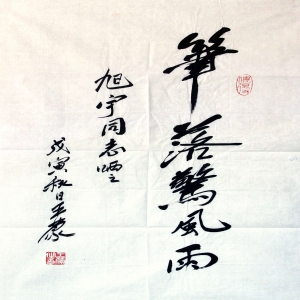 筆落驚風雨
旭宇同志哂之
戊寅秋日王蒙